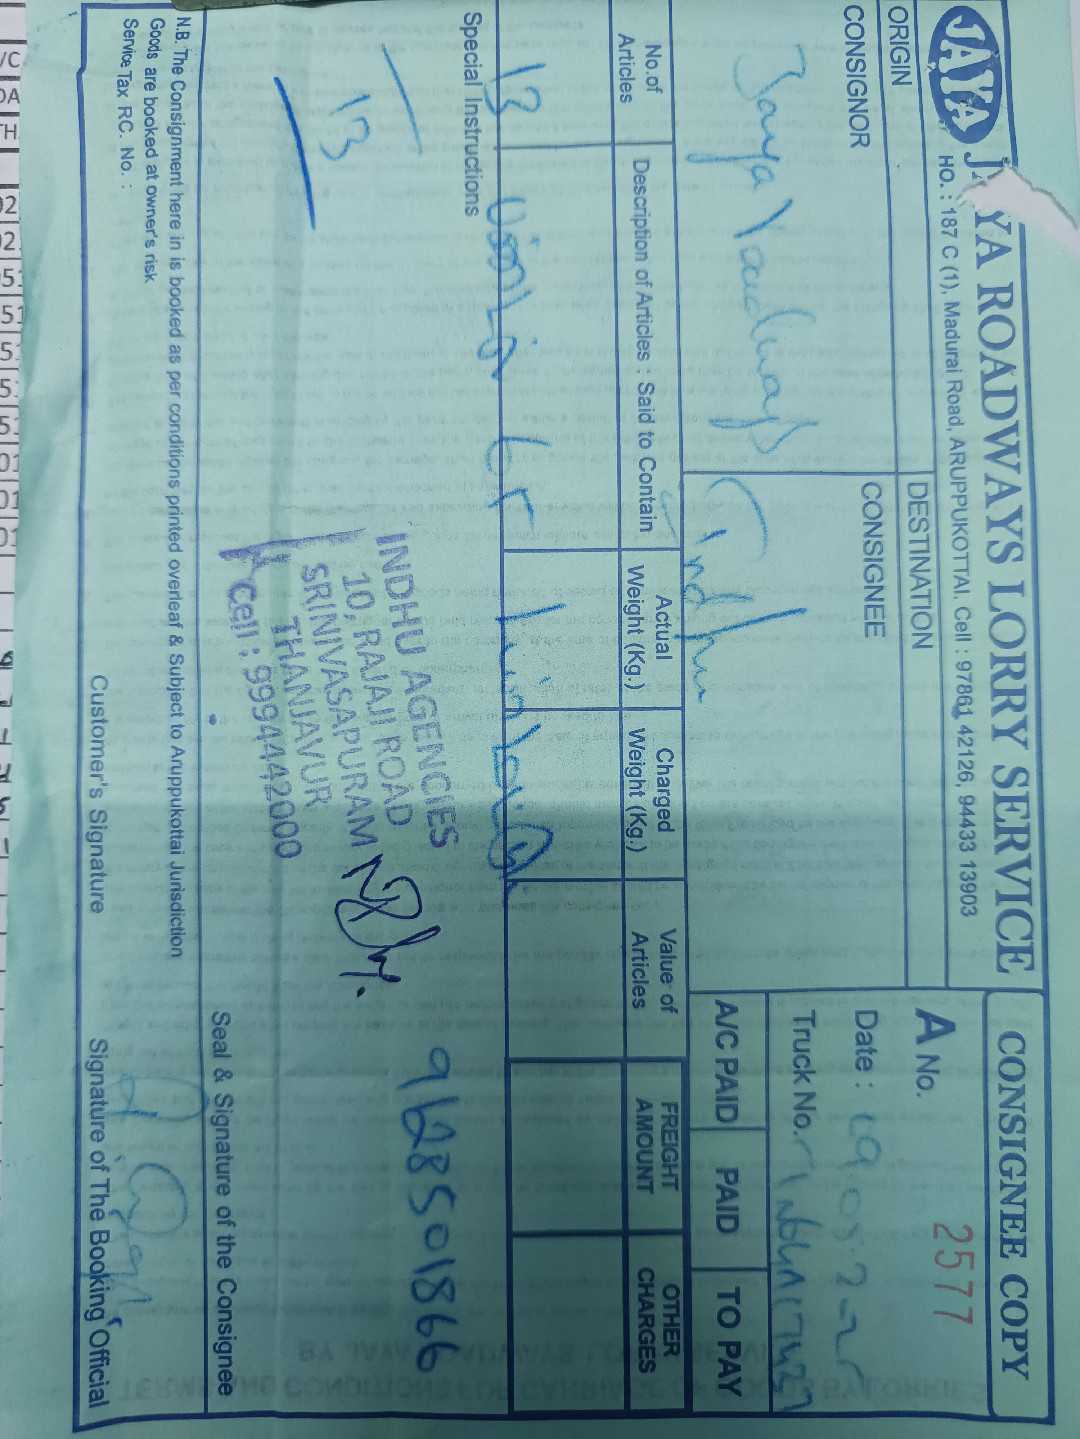 JAYA
JAYA ROADWAYS LORRY SERVICE
HO. : 187 C (1), Madurai Road, ARUPPUKOTTAI. Cell : 97861 42126, 94433 13903
CONSIGNEE COPY
A No. 2577
ORIGIN
DESTINATION
Date :
CONSIGNOR
CONSIGNEE
Truck No.
Jaya Roadways
Indhu
A/C PAID
PAID
TO PAY
No.of Articles
Description of Articles : Said to Contain
Actual Weight (Kg.)
Charged Weight (Kg.)
Value of Articles
FREIGHT AMOUNT
OTHER CHARGES
13
Special Instructions
13
INDHU AGENCIES
10, RAJAJI ROAD
SRINIVASAPURAM
THANJAVUR
Cell : 9994442000
9628501866
Seal & Signature of the Consignee
N.B. The Consignment here in is booked as per conditions printed overleaf & Subject to Aruppukottai Jurisdiction
Goods are booked at owner's risk
Service Tax RC. No. :
Customer's Signature
Signature of The Booking Official